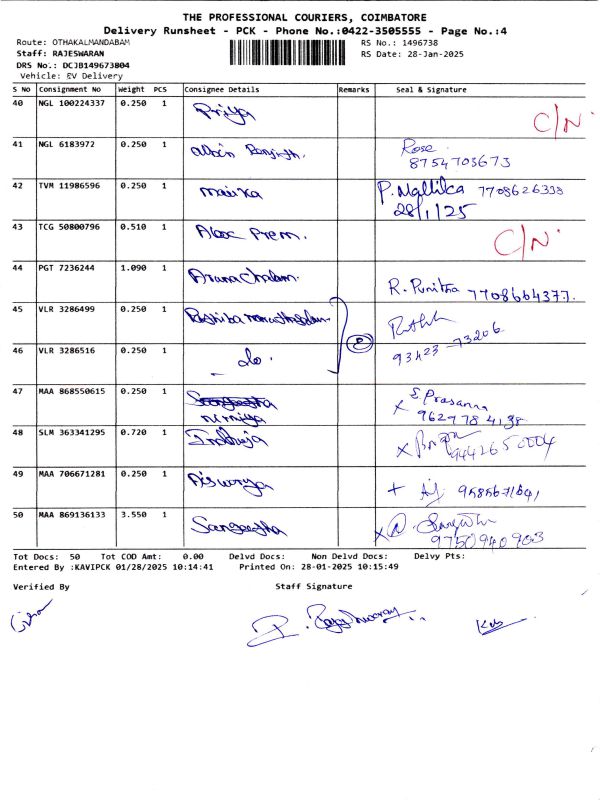 THE PROFESSIONAL COURIERS, COIMBATORE
Delivery Runsheet - PCK - Phone No.:0422-3505555 - Page No.:4
Route: OTHAKALMANDABAM RS No.: 1496738
Staff: RAJESWARAN RS Date: 28-Jan-2025
DRS No.: DCJB149673804
Vehicle: EV Delivery
S No Consignment No Weight PCS Consignee Details Remarks Seal & Signature
40 NGL 100224337 0.250 1 Priya C/N
41 NGL 6183972 0.250 1 Rose
8754703673
42 TVM 11986596 0.250 1 P. Mallika 7708626338
28/1/25
43 TCG 50800796 0.510 1 Prem. C/N
44 PGT 7236244 1.090 1 Arunachalam R. Punitha 7708664377
45 VLR 3286499 0.250 1
46 VLR 3286516 0.250 1 do. 2 93423 73206
47 MAA 868550615 0.250 1 Sangeetha x S. Prasanna
9627784138
48 SLM 363341295 0.720 1 Indhuja x 9442650004
49 MAA 706671281 0.250 1 Aiswarya +
50 MAA 869136133 3.550 1 Sangeetha x
9750940903
Tot Docs: 50 Tot COD Amt: 0.00 Delvd Docs: Non Delvd Docs: Delvy Pts:
Entered By :KAVIPCK 01/28/2025 10:14:41 Printed On: 28-01-2025 10:15:49
Verified By Staff Signature